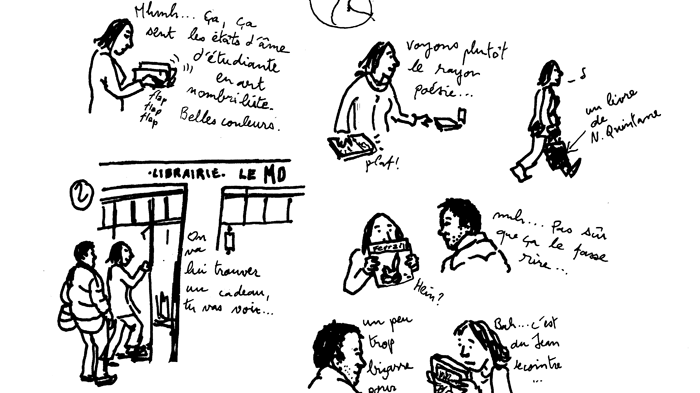 Mhmh... Ça, ça
sent les états d'âme
d'étudiante
en art
nombriliste.
Belles couleurs.
flap
flap
flap
voyons plutôt
le rayon
poésie...
plaf!
un livre
de
N. Quintane
2
·LIBRAIRIE· LE MO
On
va
lui trouver
un cadeau,
tu vas voir...
Ferrari
Hein?
mmh.... Pas sûr
que ça le fasse
rire...
un peu
trop
bizarre
pour
Bah...c'est
du Jean
Lecointre
...